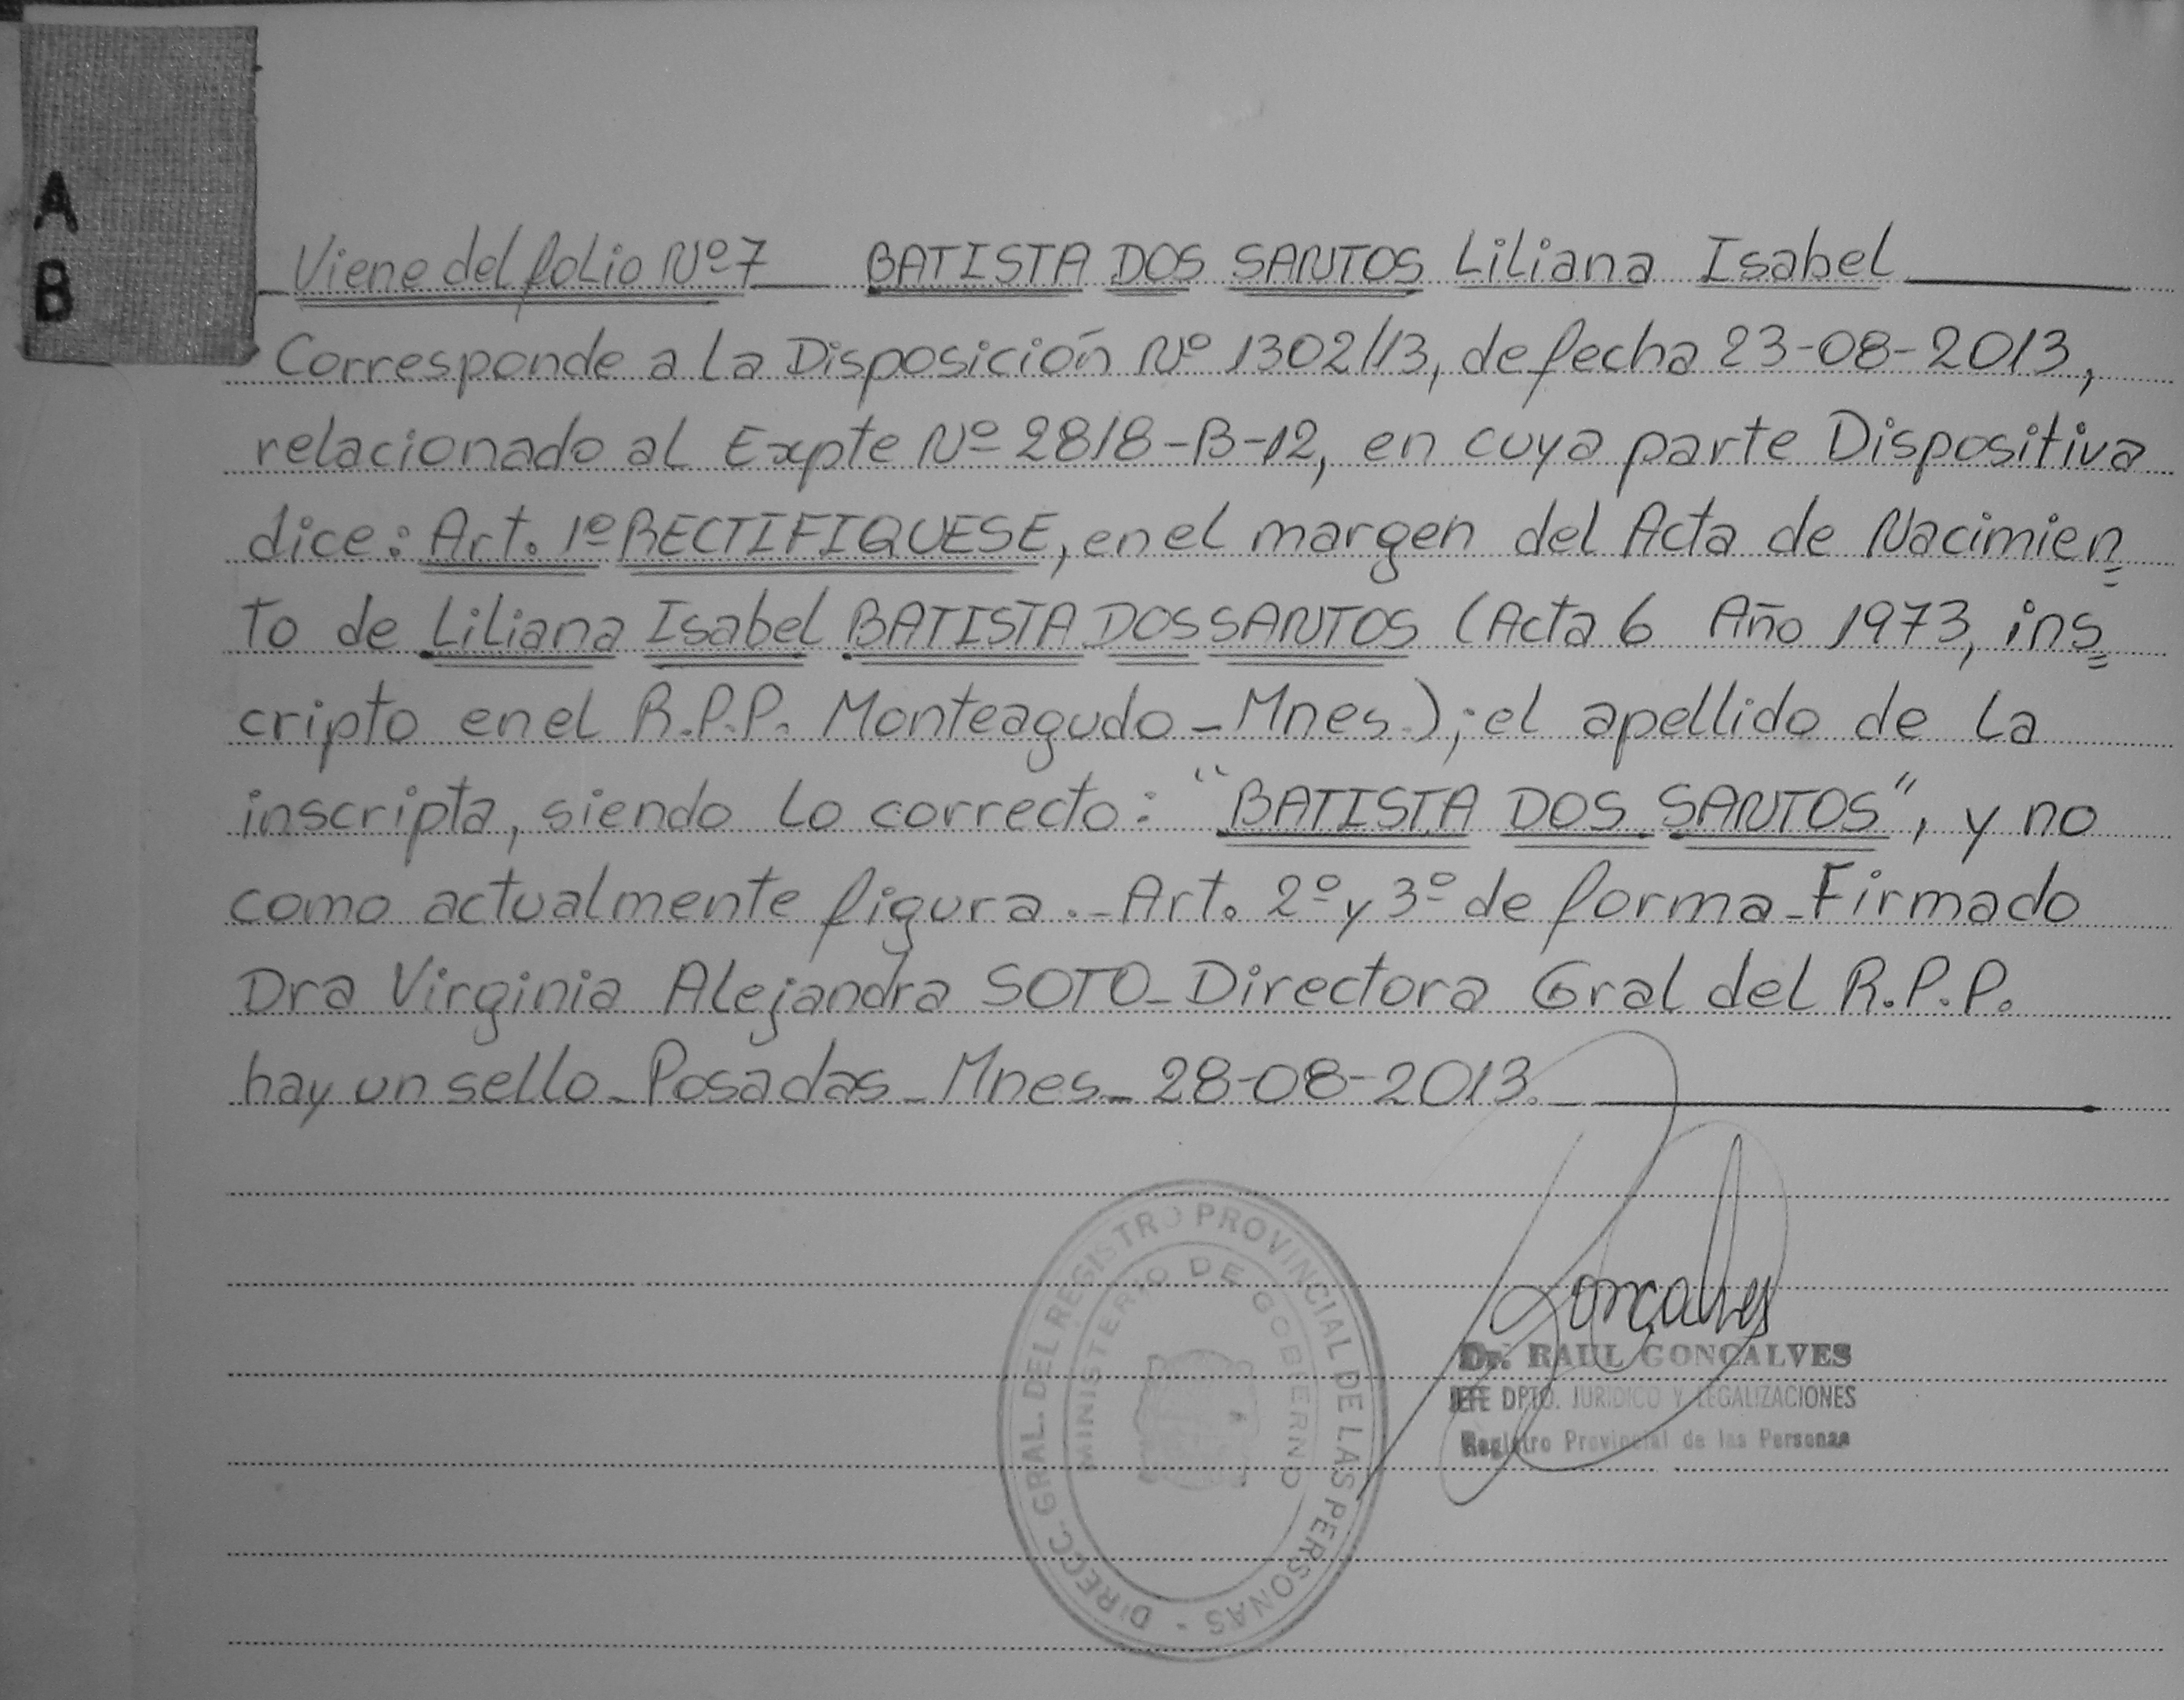 A
B
Viene del folio Nº 7 BATISTA DOS SANTOS Liliana Isabel
Corresponde a la Disposición Nº 1302/13, de fecha 23-08-2013,
relacionado al Expte Nº 2818-B-12, en cuya parte Dispositiva
dice: Art. 1º RECTIFIQUESE, en el margen del Acta de Nacimien
to de Liliana Isabel BATISTA DOS SANTOS (Acta 6 Año 1973, ins
cripto en el R.P.P. Monteagudo - Mnes.); el apellido de la
inscripta, siendo lo correcto: "BATISTA DOS SANTOS", y no
como actualmente figura.- Art. 2º y 3º de forma - Firmado
Dra Virginia Alejandra SOTO - Directora Gral del R.P.P.
hay un sello - Posadas - Mnes - 28-08-2013.
DIRECC. GRAL. DEL REGISTRO PROVINCIAL DE LAS PERSONAS -
MINISTERIO DE GOBIERNO
Goncalves
Dr. RAUL GONCALVES
JEFE DPTO. JURIDICO Y LEGALIZACIONES
Registro Provincial de las Personas